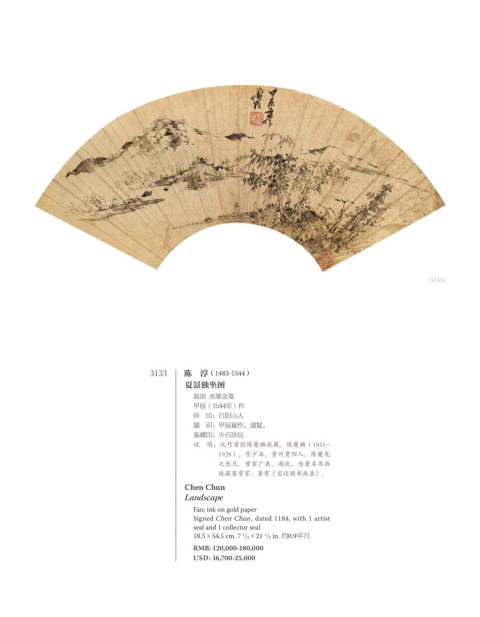 甲辰夏作
道復
[3133]
3133 陈 淳（1483-1544）
夏景独坐图
扇面 水墨金笺
甲辰（1544年）作
钤 印：白阳山人
题 识：甲辰夏作。道复。
鉴藏印：少石珍玩
说 明：此作曾旧陈夔麟收藏。陈夔麟（1855–
1928），字少石，贵州贵阳人。陈夔龙
之长兄。曾官广东、湖北。为著名书画
收藏鉴赏家。著有《宝迂阁书画录》。
Chen Chun
Landscape
Fan; ink on gold paper
Signed Chen Chun, dated 1184, with 1 artist
seal and 1 collector seal
18.5 × 54.5 cm. 7 1/4 × 21 1/2 in. 约0.9平尺
RMB: 120,000-180,000
USD: 16,700-25,000